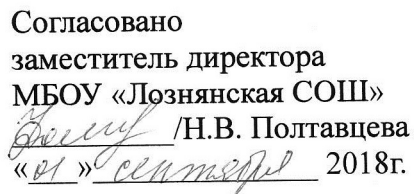 Согласовано
заместитель директора
МБОУ «Лознянская СОШ»
/Н.В. Полтавцева
«01» сентября 2018г.